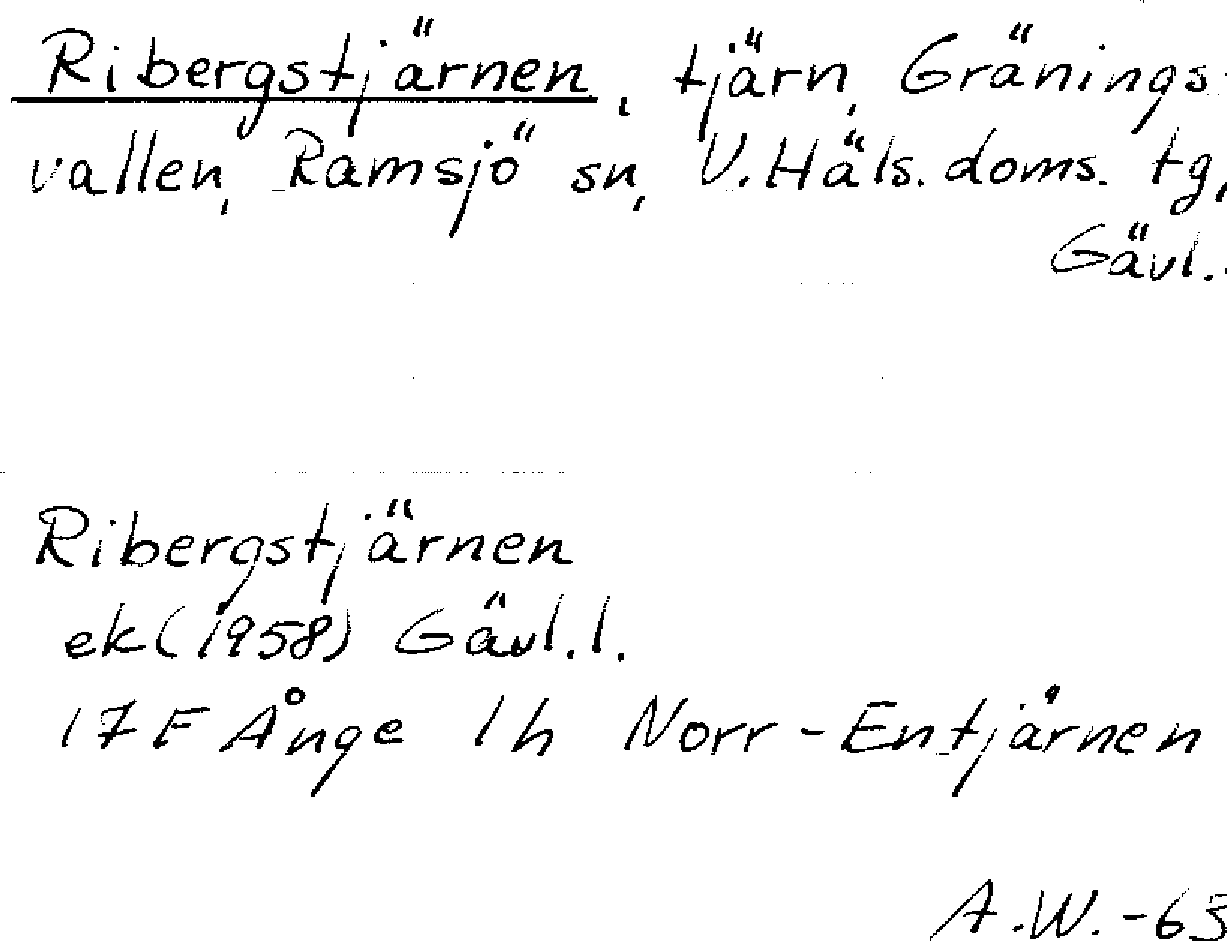 Ribergstjärnen, tjärn, Gränings-
vallen, Ramsjö sn, V. Häls. doms. tg,
Gävl.
Ribergstjärnen
ek (1958) Gävl. l.
17F Ånge 1h Norr-Entjärnen
A.W. -63